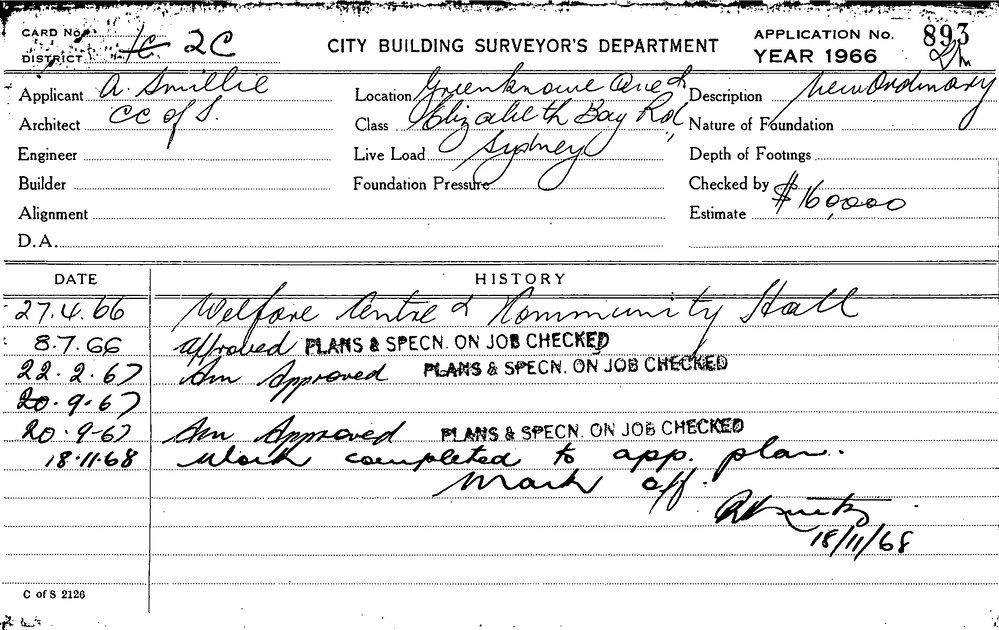 CARD No.
DISTRICT 1C 2C
CITY BUILDING SURVEYOR'S DEPARTMENT
APPLICATION No. 893
YEAR 1966
Applicant A. Smillie
Location Greenknowe Ave &
Description New Ordinary
Architect CC of S.
Class Elizabeth Bay Rd,
Nature of Foundation
Engineer
Live Load Sydney
Depth of Footings
Builder
Foundation Pressure
Checked by
Alignment
Estimate $160,000
D.A.
DATE HISTORY
27.4.66 Welfare Centre & Kommunity Hall
8.7.66 Approved PLANS & SPECN. ON JOB CHECKED
22.2.67 Am Approved PLANS & SPECN. ON JOB CHECKED
20.9.67
20.9-67 Am Approved PLANS & SPECN. ON JOB CHECKED
18.11.68 Work completed to app. plan.
Mark off.
18/11/68
C of S 2126